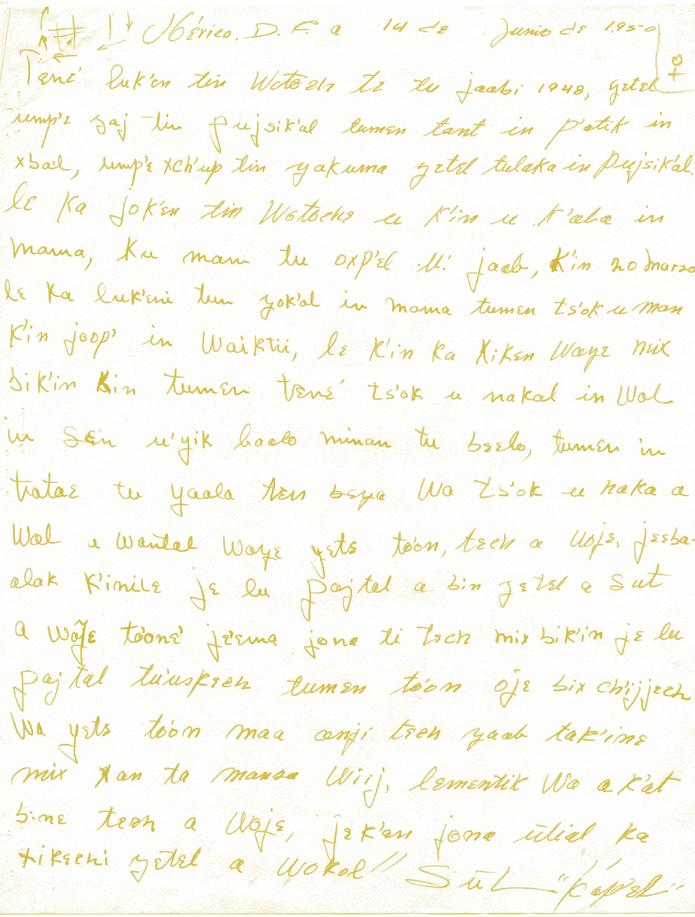 México. D. F. a 14 de Junio de 1950
Tené luk'en tin Wotoch te tu jaabi 1948, yetel
ump'e yaj tin pujsik'al tumen tant in p'atik in
xbal, ump'e xch'up tin yakuma yetel tulaka in Pujsik'al.
le ka jok'en tin Wotoche u K'in u K'aba in
mama, Ku mam tu oxp'el u' jaab, K'in 20 Marzo
le Ka luk'eni tun yok'ol in mama tumen ts'ok u man
K'in joop' in Waiktii, le K'in Ka Xiken Waye mix
bik'in Kin tumen tené ts'ok u nakal in Wol
in Sen u'yik baalo minan tu beelo, tumen in
tatae tu yaala ten beya Wa ts'ok u naka a
Wol u Wantal Waye yete toon, tech a Woje, jeeba-
alak K'inile je lu pajtal a bin yetel a Sut
a Woje tóone' je'ema jona ti tech mix bik'in je lu
pajtal tu'uskech tumen tóon oje bix ch'ijjech
Wa yete tóon maa anji tech yaab tak'ine
mix Xan ta mansa Wiij, lementik Wa a K'at
bine tech a Woje, jek'an jona útial ka
xikechi yetel a Wokol" Súl "Káp'el"